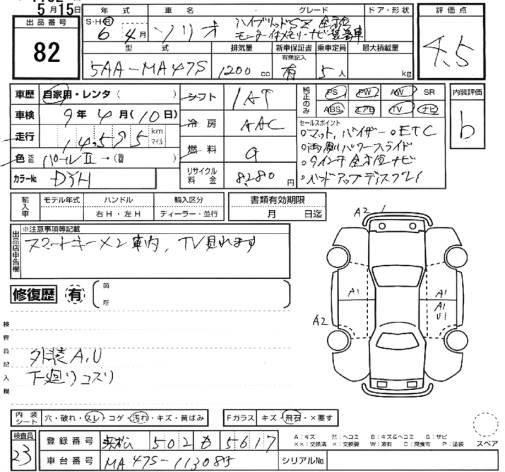 5月15日
出品番号
82
年式 車名 グレード ドア・形状
S・H・R
6年4月 ソリオ ハイブリッドSZ
型式 排気量 新車保証書 有無記入 乗車定員 最大積載量
5AA-MA47S 1200cc 有 5人 kg
評価点
4.5
車歴 自家用・レンタ( )
車検 9年4月(10日)
走行 14,595 km マイル
色 パールⅡ→( )
カラーNo.
シフト IAT
冷房 AAC
燃料 g
リサイクル料金 8280円
純正のみ PS PW AW SR
ABS エアB TV ナビ
セールスポイント
○マット、バイザー ○ETC
○両側パワースライド
○9インチ全方位ナビ
○ヘッドアップディスプレイ
内装評価
b
輸入車 モデル年式 ハンドル 輸入区分
年 右H・左H ディーラー・並行
書類有効期限
月 日迄
出品店申告欄
※注意事項等記載
スマートキー×2車内、TV見れます
修復歴 有 箇所
検査員記入欄
外装A,U
下廻りコスリ
A2 1
A1 A1
A2 A1
U1
内装シート 穴・破れ・スレ・コゲ・汚れ・キズ・黄ばみ
Fガラス キズ・飛石・×要す
検査員
23
登録番号 502 5617
車台番号 MA47S-
シリアルNo.
スペア